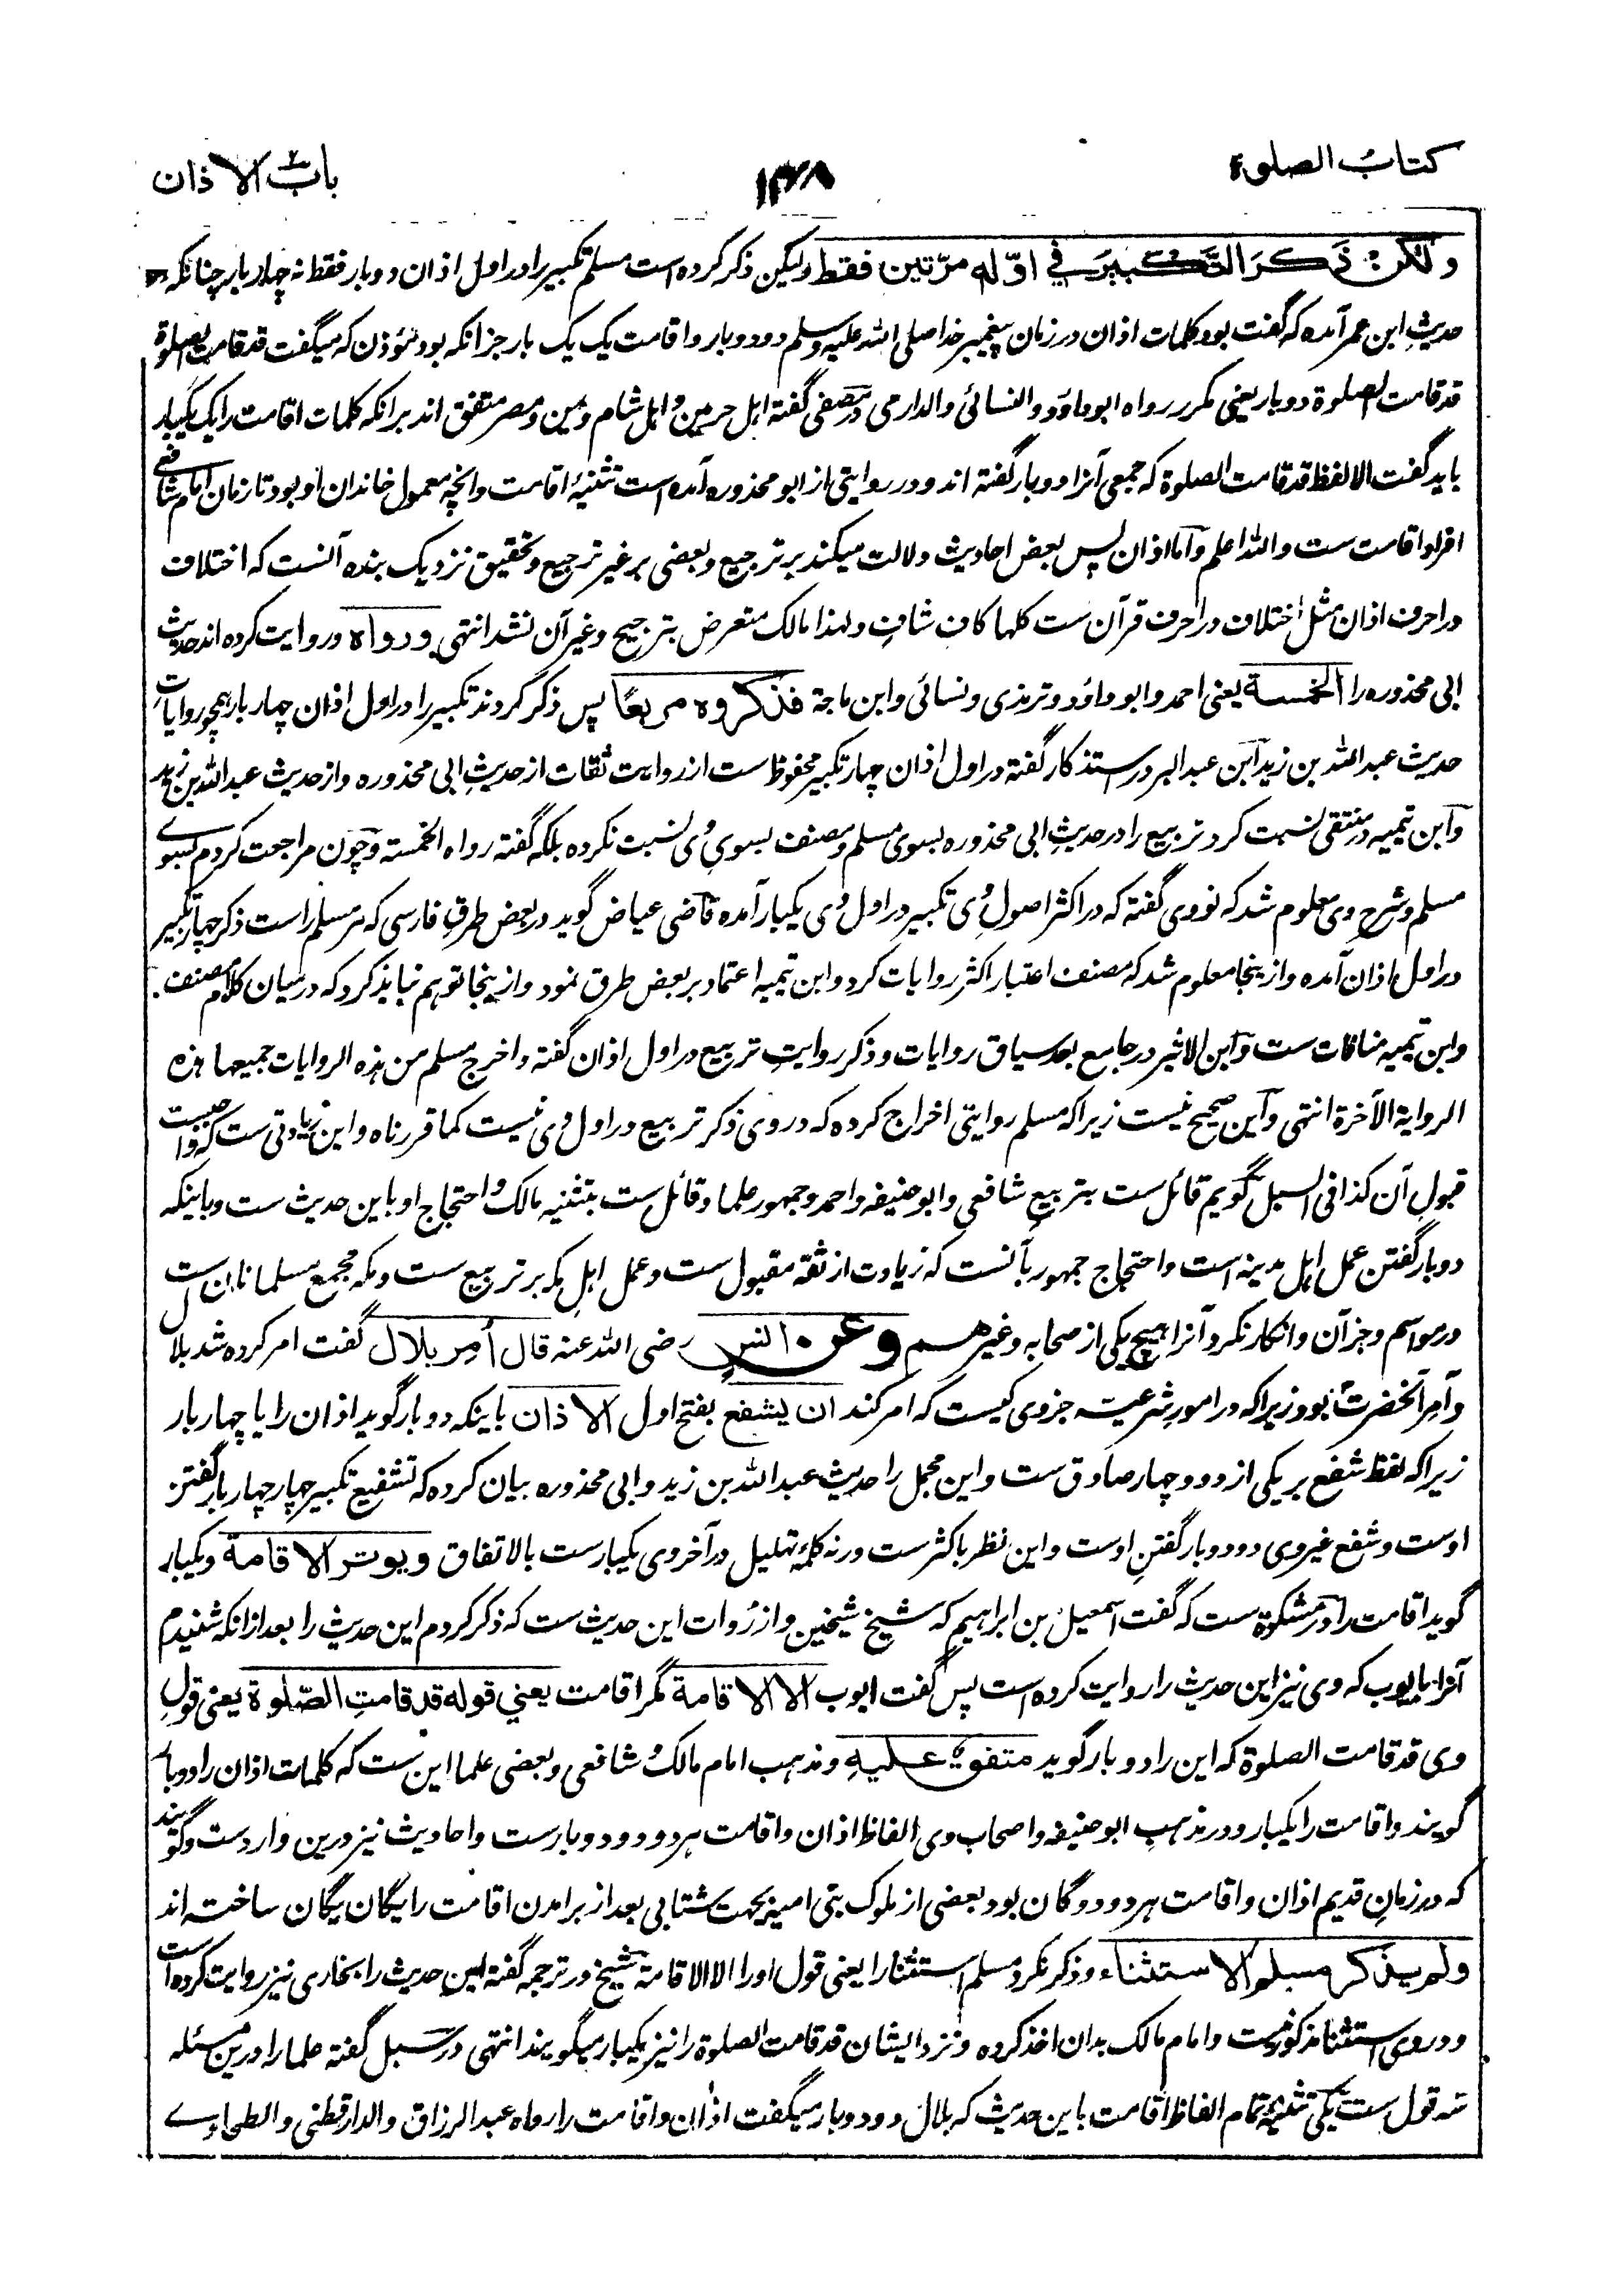 کتابُ الصلوة
۱۳۸
بابُ الاذان
ولکن ذکر التکبیر فی اوّله مرّتین فقط ولیکن ذکر کرده است مسلم تکبیر را در اول اذان دو بار فقط نه چهار بار چنانکه در
حدیثِ ابن عمر آمده که گفت بود کلمات اذان در زمان پیغمبر خدا صلی الله علیه وسلم دو دو بار و اقامت یک یک بار جز آنکه بود مؤذن که میگفت قد قامت الصلوة
قد قامت الصلوة دو بار یعنی مکرر رواه ابو داؤد والنسائی والدارمی در مصفی گفته اهل حرمین و اهل شام و یمن و مصر متفق اند بر انکه کلمات اقامت را یک یکبار
باید گفت الا لفظ قد قامت الصلوة که جمعی آنرا دو بار گفته اند و در روایتی از ابو محذوره آمده است تثنیهٔ اقامت وانچه معمول خاندان او بود تا زمان امام شافعی
افراد اقامت ست والله اعلم واما اذان پس بعض احادیث دلالت میکند بر ترجیع و بعضی بر غیر ترجیع و تحقیق نزدیک بنده آنست که اختلاف
در احرف اذان مثل اختلاف در احرف قرآن ست کلها کافٍ شافٍ ولهذا مالک متعرض بترجیح و غیر آن نشد انتهی ورواه و روایت کرده اند حدیث
ابی محذوره را الخمسة یعنی احمد و ابو داؤد و ترمذی و نسائی و ابن ماجة فذکروه مربعًا پس ذکر کردند تکبیر را در اول اذان چهار بار همچو روایات
حدیث عبد الله بن زید ابن عبد البر در استذکار گفته در اول اذان چهار تکبیر محفوظ ست از روایت ثقات از حدیثِ ابی محذوره و از حدیث عبد الله بن زید
وابن تیمیه در منتقی نسبت کرد تربیع را در حدیثِ ابی محذوره بسوی مسلم و مصنف بسویِ وی نسبت نکرده بلکه گفته رواه الخمسته وچون مراجعت کردم بسوے
مسلم و شرحِ وی معلوم شد که نووی گفته که در اکثر اصول وی تکبیر در اول وی یکبار آمده قاضی عیاض گوید در بعض طرقِ فارسی که مر مسلم را ست ذکر چهار تکبیر
در اول اذان آمده و ازینجا معلوم شد که مصنف اعتبار اکثر روایات کرد و ابن تیمیه اعتماد بر بعض طرق نمود و ازینجا توهم نباید کرد که در میان کلام مصنف
وابن تیمیه منافات ست وابن الاثیر در جامع بعد سیاق روایات و ذکر روایتِ تربیع در اول اذان گفته واخرج مسلم من هذه الروایات جمیعها هذه
الروایة الآخرة انتهی واین صحیح نیست زیرا که مسلم روایتی اخراج کرده که در وی ذکر تربیع در اول وی نیست کما قررناه و این زیادتی ست که واجبست
قبولِ آن کذا فی السبل گویم قائل ست بتربیعِ شافعی و ابو حنیفه و احمد و جمهور علما و قائل ست بتثنیه مالک و احتجاج او باین حدیث ست و باینکه
دو بار گفتن عمل اهل مدینه است و احتجاج جمهور بآنست که زیادت از ثقه مقبول ست و عمل اهلِ مکه بر تربیع ست و مکه مجمع مسلمانان ست
در مواسم و جز آن و انکار نکرد آنرا هیچ یکی از صحابه و غیرهم وعن انسٍ رضی الله عنه قال اُمِر بلال گفت امر کرده شد بلال
وآمر آنحضرت بود زیرا که در امور شرعیه جز وی کیست که امر کند ان یشفع بفتح اول الاذان باینکه دو بار گوید اذان را یا چهار بار
زیرا که لفظ شفع بر یکی از دو و چهار صادق ست و این مجمل را حدیث عبد الله بن زید و ابی محذوره بیان کرده که تشفیع تکبیر چهار چهار بار گفتن
اوست و شفع غیر وی دو دو بار گفتنِ اوست و این نظر باکثر ست ورنه کلمهٔ تهلیل در آخر وی یکبار ست بالاتفاق ویوتر الاقامة و یکبار
گوید اقامت را در مشکوة ست که گفت اسمعیل بن ابراهیم که شیخ شیخین و از رُوات این حدیث ست که ذکر کردم این حدیث را بعد از انکه شنیدم
آنرا بایوب که وی نیز این حدیث را روایت کرده است پس گفت ایوب الا الاقامة مگر اقامت یعنی قوله قد قامتِ الصّلوة یعنی قولِ
وی قد قامت الصلوة که این را دو بار گوید متفقٌ علیهِ و مذهب امام مالک و شافعی و بعضی علما این ست که کلمات اذان را دو بار
گویند و اقامت را یکبار و در مذهبِ ابو حنیفه و اصحاب وی الفاظ اذان و اقامت هر دو دو دو بار ست و احادیث نیز درین وارد ست و گویند
که در زمانِ قدیم اذان و اقامت هر دو دوگان بود بعضی از ملوک بنی امیه بجهت شتابی بعد از برآمدن اقامت را یگان یگان ساخته اند
ولم یذکر مسلم الاستثناء و ذکر نکرد مسلم استثنا را یعنی قول او را الا الاقامة شیخ در ترجمه گفته این حدیث را بخاری نیز روایت کرده است
و در وی استثنا مذکور نیست و امام مالک بدان اخذ کرده و نزد ایشان قد قامت الصلوة را نیز یکبار میگویند انتهی در سبل گفته علما را درین مسئله
سه قول ست یکی تثنیهٔ تمام الفاظ اقامت باین حدیث که بلال دو دو بار میگفت اذان و اقامت را رواه عبد الرزاق والدارقطنی والطحاوے